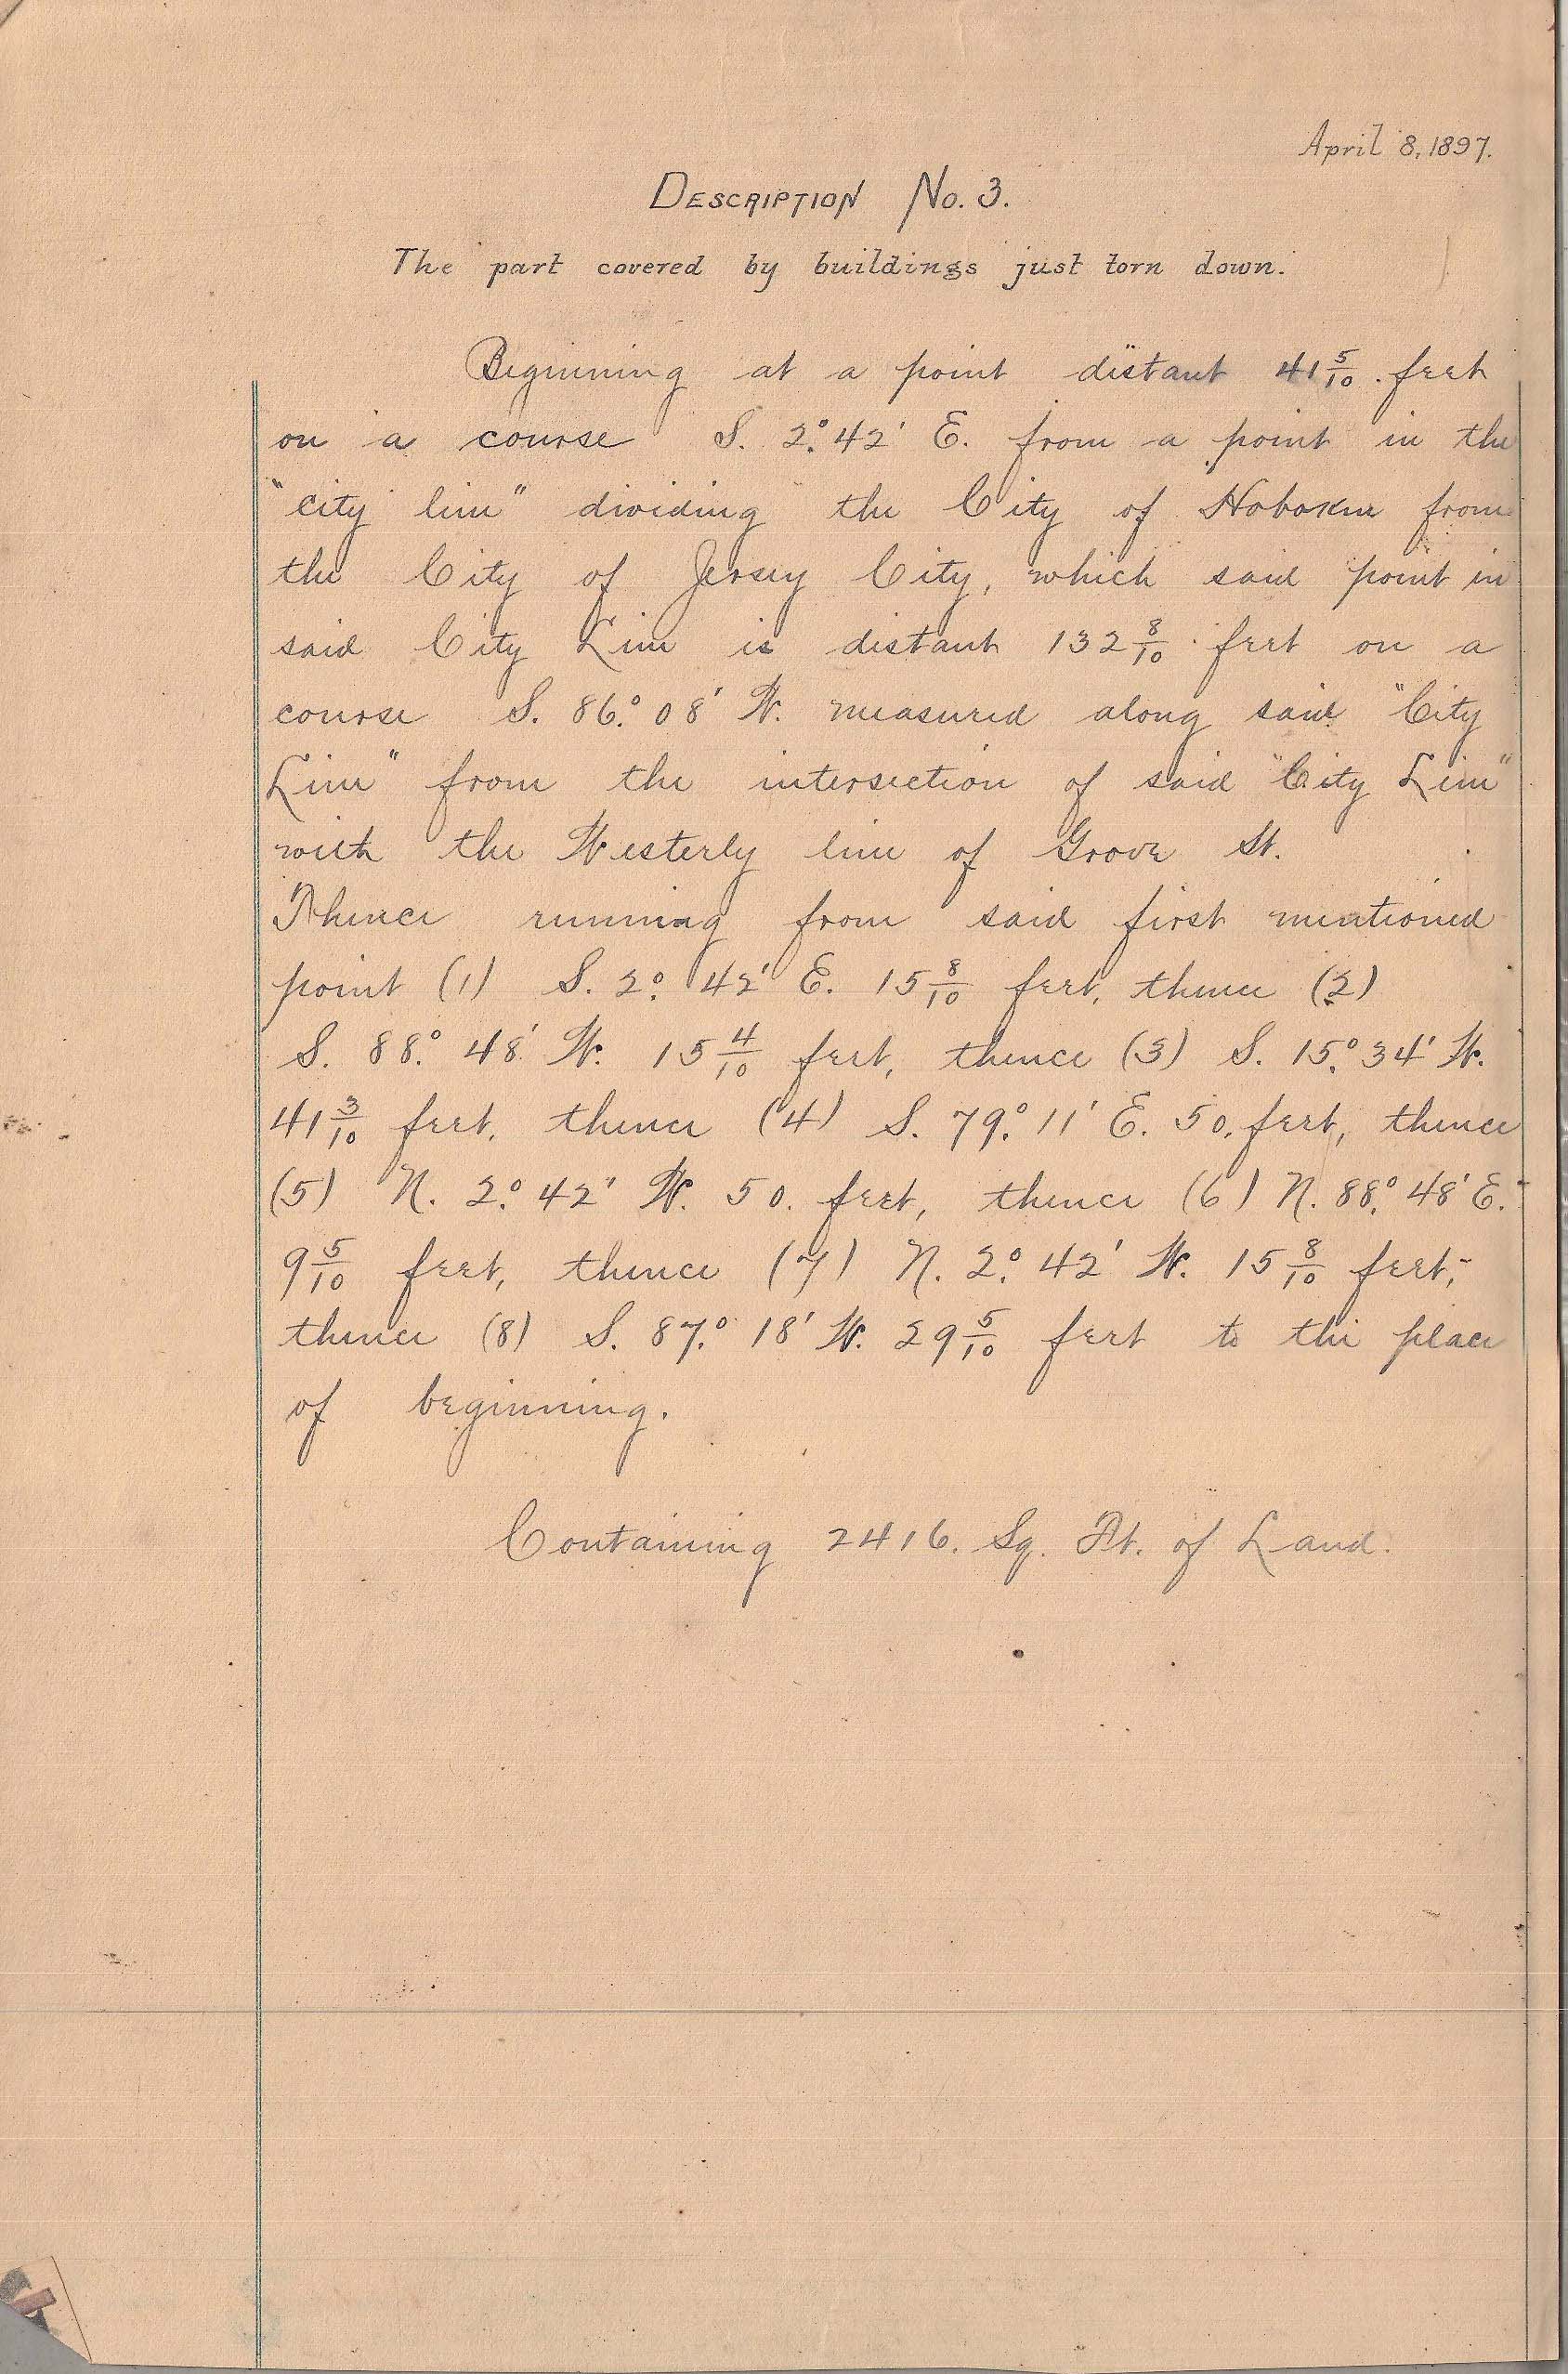 April 8, 1897.
Description No. 3.
The part covered by buildings just torn down.
Beginning at a point distant 41 5/10 feet
on a course S. 2° 42' E. from a point in the
"city line" dividing the City of Hoboken from
the City of Jersey City, which said point in
said City Line is distant 132 8/10 feet on a
course S. 86° 08' W. measured along said "City
Line" from the intersection of said "City Line"
with the Westerly line of Grove St.
Thence running from said first mentioned
point (1) S. 2° 42' E. 15 8/10 feet, thence (2)
S. 88° 48' W. 15 4/10 feet, thence (3) S. 15° 34' W.
41 3/10 feet, thence (4) S. 79° 11' E. 50. feet, thence
(5) N. 2° 42' W. 50. feet, thence (6) N. 88° 48' E.
9 5/10 feet, thence (7) N. 2° 42' W. 15 8/10 feet,
thence (8) S. 87° 18' W. 29 5/10 feet to the place
of beginning.
Containing 2416. Sq. Ft. of Land.